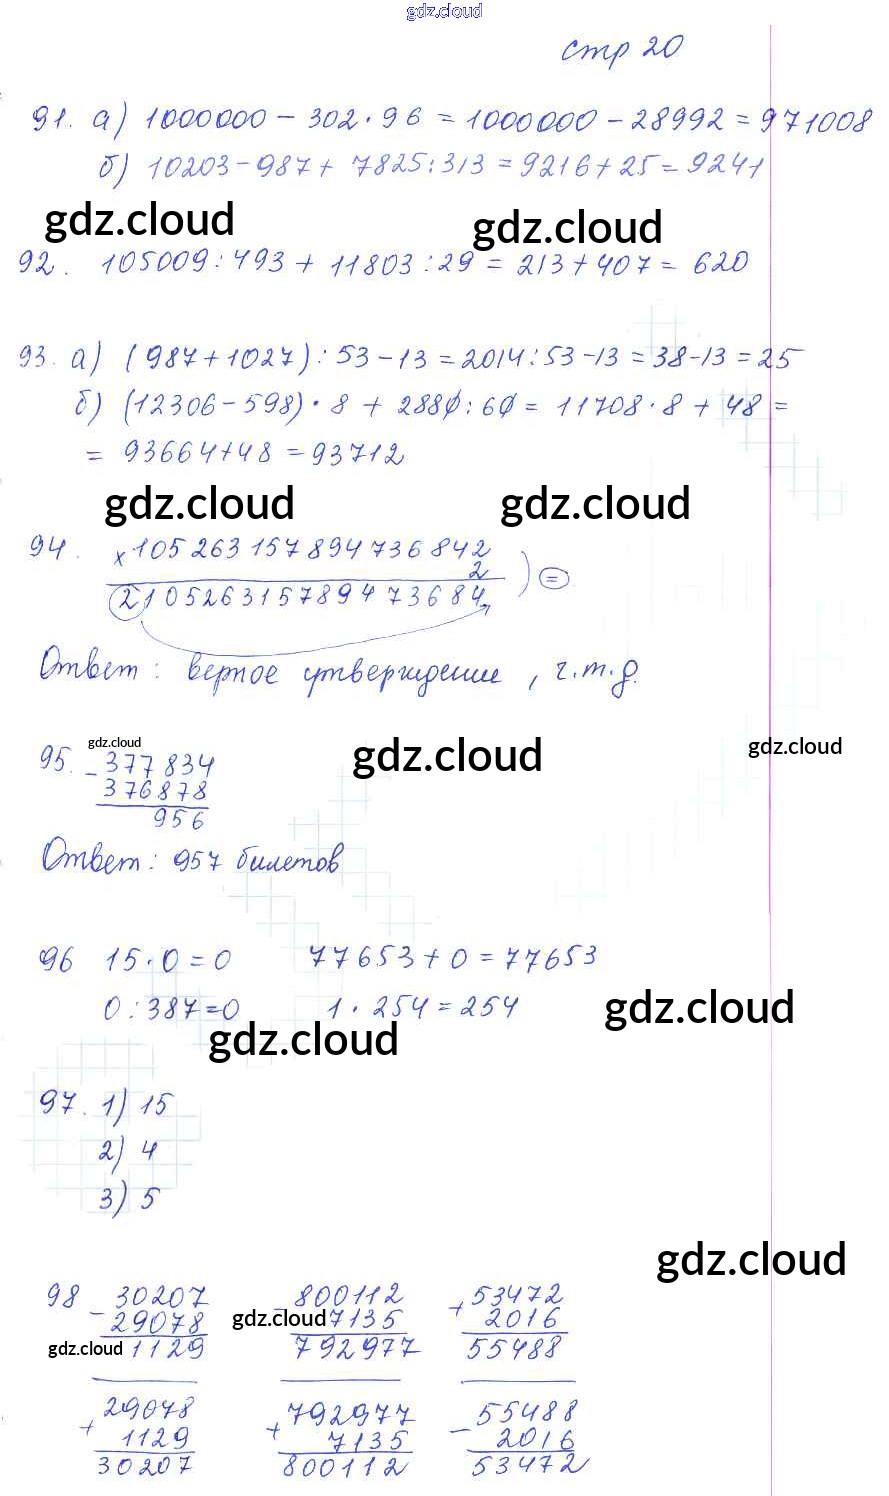 gdz.cloud
стр 20
91. а) 1000000 - 302 · 96 = 1000000 - 28992 = 971008
б) 10203 - 987 + 7825 : 313 = 9216 + 25 = 9241
gdz.cloud gdz.cloud
92. 105009 : 493 + 11803 : 29 = 213 + 407 = 620
93. а) (987 + 1027) : 53 - 13 = 2014 : 53 - 13 = 38 - 13 = 25
б) (12306 - 598) · 8 + 2880 : 60 = 11708 · 8 + 48 =
= 93664 + 48 = 93712
gdz.cloud gdz.cloud
94. x 105 263 157 894 736 842
2 ) =
210526315789473684
Ответ: верное утверждение, ч.т.д.
gdz.cloud gdz.cloud gdz.cloud
95. - 377834
376878
956
Ответ: 957 билетов
96 15 · 0 = 0 77653 + 0 = 77653
0 : 387 = 0 1 · 254 = 254
gdz.cloud gdz.cloud
97. 1) 15
2) 4
3) 5
gdz.cloud
98 - 30207 - 800112 + 53472
29078 gdz.cloud 7135 2016
gdz.cloud 1129 792977 55488
+ 29078 + 792977 - 55488
1129 7135 2016
30207 800112 53472